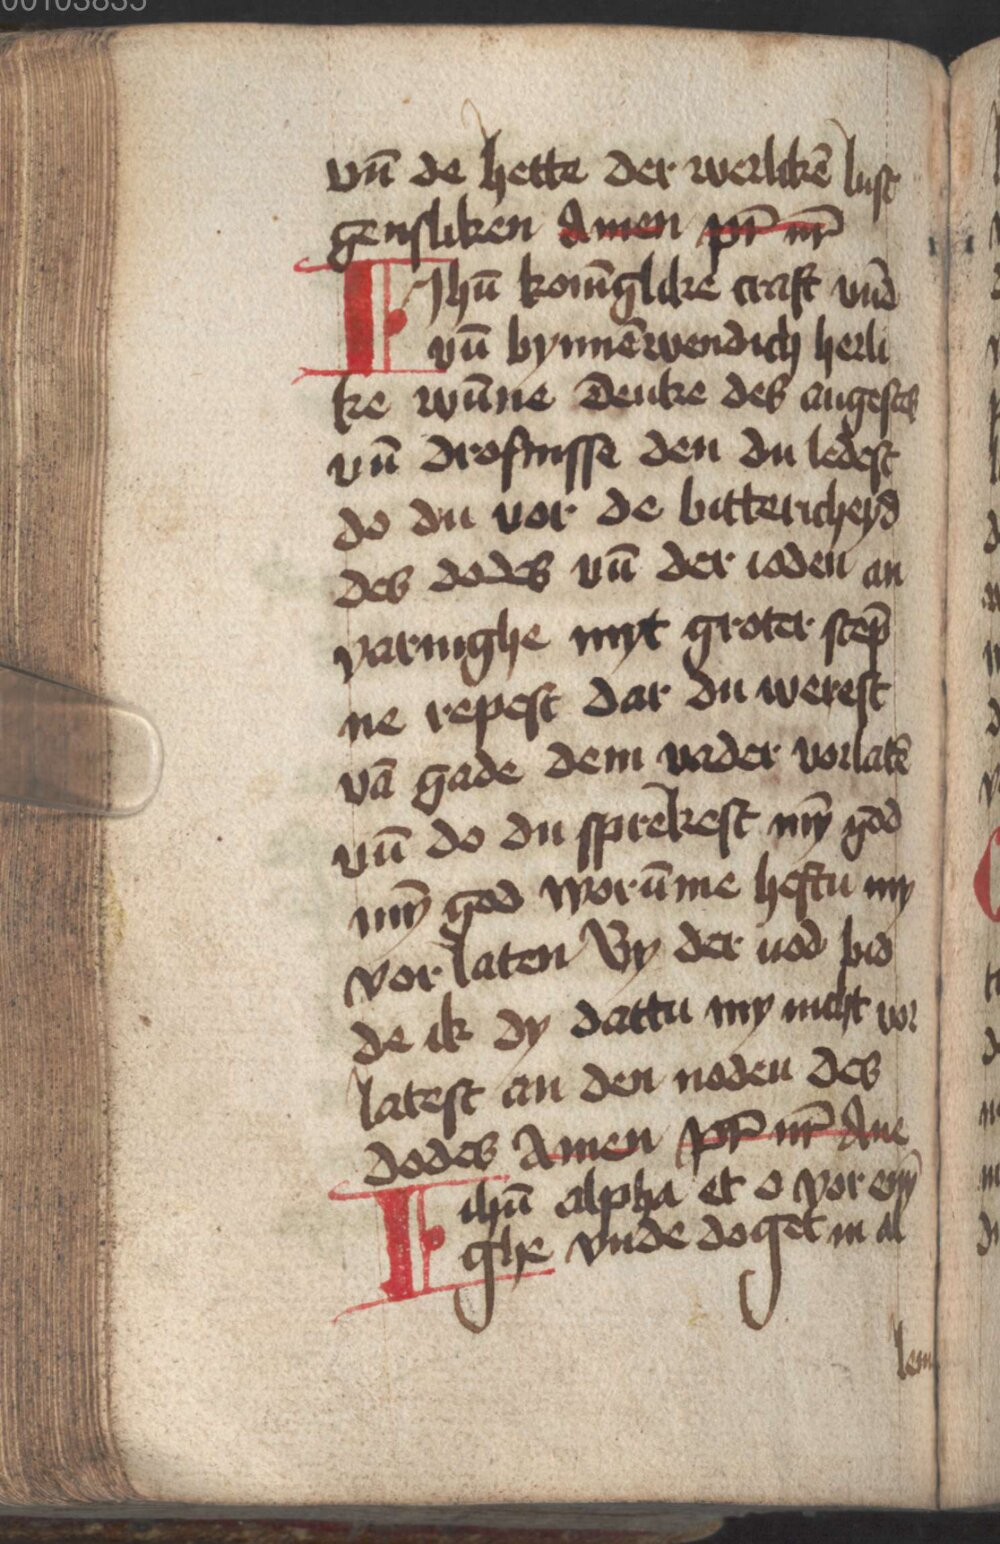 00103835
vn̄ de hette der werlikē lust
gensliken Amen pr̄ nr̄
O Jhū konīglike craft vnd̄
vn̄ bynnēwendich herli
ke wūne denke des angestes
vn̄ drofnisse den du ledest
do du vor de bittericheyd
des dodes vn̄ der ioden an
varnighe myt groter step̄
ne repest dar du werest
vā gade dem vader vorlatē
vn̄ do du sprēkest mȳ god
mȳ god worūme heftu my
vorlaten By der nod bid
de ik dy dattu my nicht vor
latest an den noden des
dodes Amen pr̄ nr̄ Aue
O ihū alpha et o vor enȳ
ghe vnde doget in al
lem